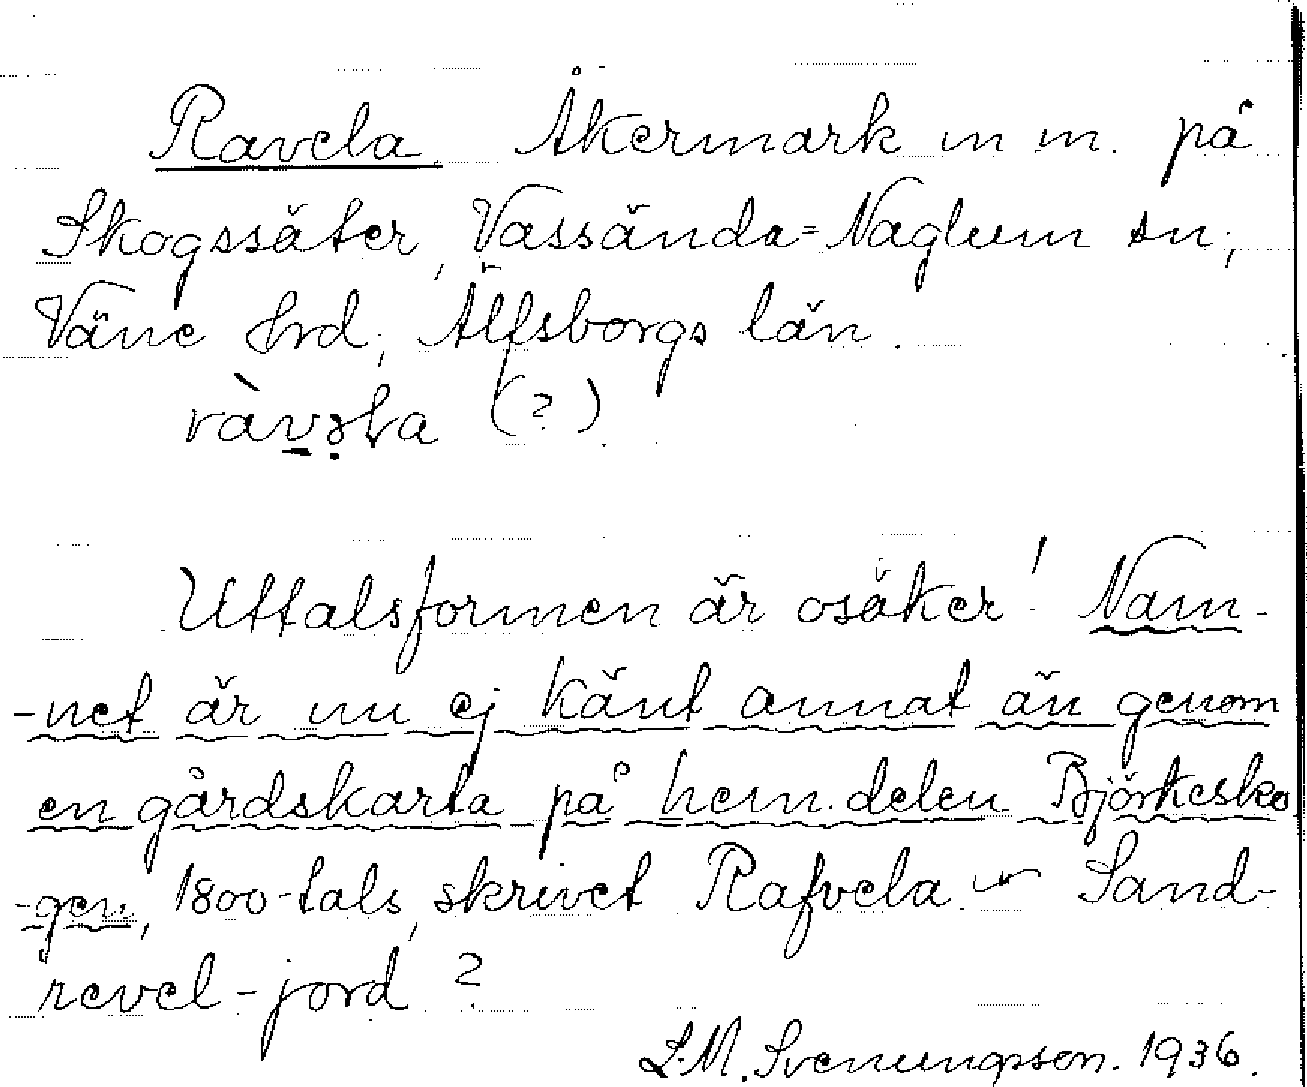 Ravela Åkermark m m. på
Skogssäter, Vassända=Naglum sn;
Väne hrd; Älfsborgs län.
(?)
Uttalsformen är osäker! Nam-
-net är nu ej känt annat än genom
en gårdskarta på hem.delen Björkesko
-gen, 1800-tals, skrivet Rafvela. ~ Sand-
revel-jord ?
S.M. Svenungsson. 1936.